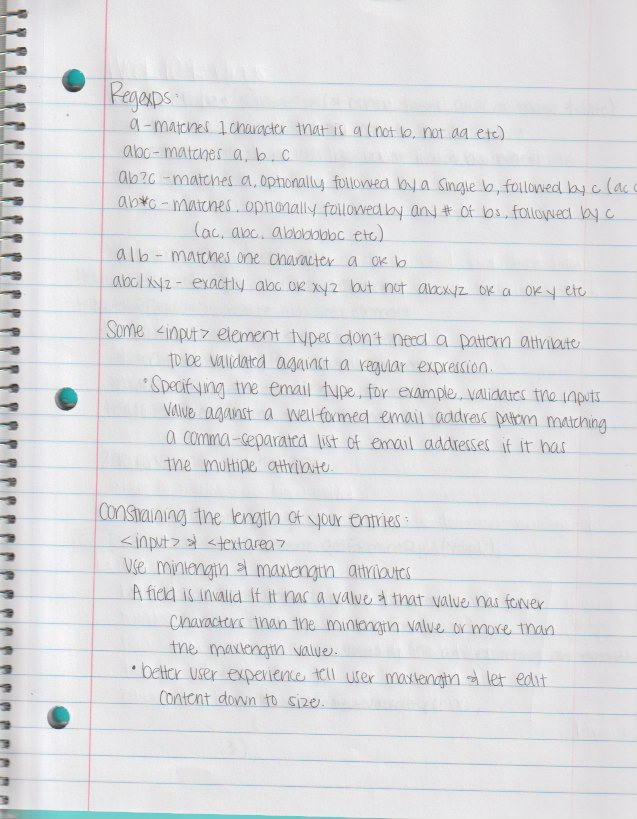 Regexps:
a - matches 1 character that is a (not b, not aa etc)
abc - matches a, b, c
ab?c - matches a, optionally followed by a single b, followed by c (ac
ab*c - matches, optionally followed by any # of bs, followed by c
(ac, abc, abbbbbbc etc)
a|b - matches one character a or b
abc|xyz - exactly abc or xyz but not abcxyz or a or y etc
Some <input> element types don't need a pattern attribute
to be validated against a regular expression.
• Specifying the email type, for example, validates the inputs
value against a well-formed email address pattern matching
a comma-separated list of email addresses if it has
the multipe attribute.
Constraining the length of your entries:
<input> & <textarea>
Use minlength & maxlength attributes
A field is invalid if it has a value & that value has fewer
characters than the minlength value or more than
the maxlength value.
• better user experience tell user maxlength & let edit
content down to size.